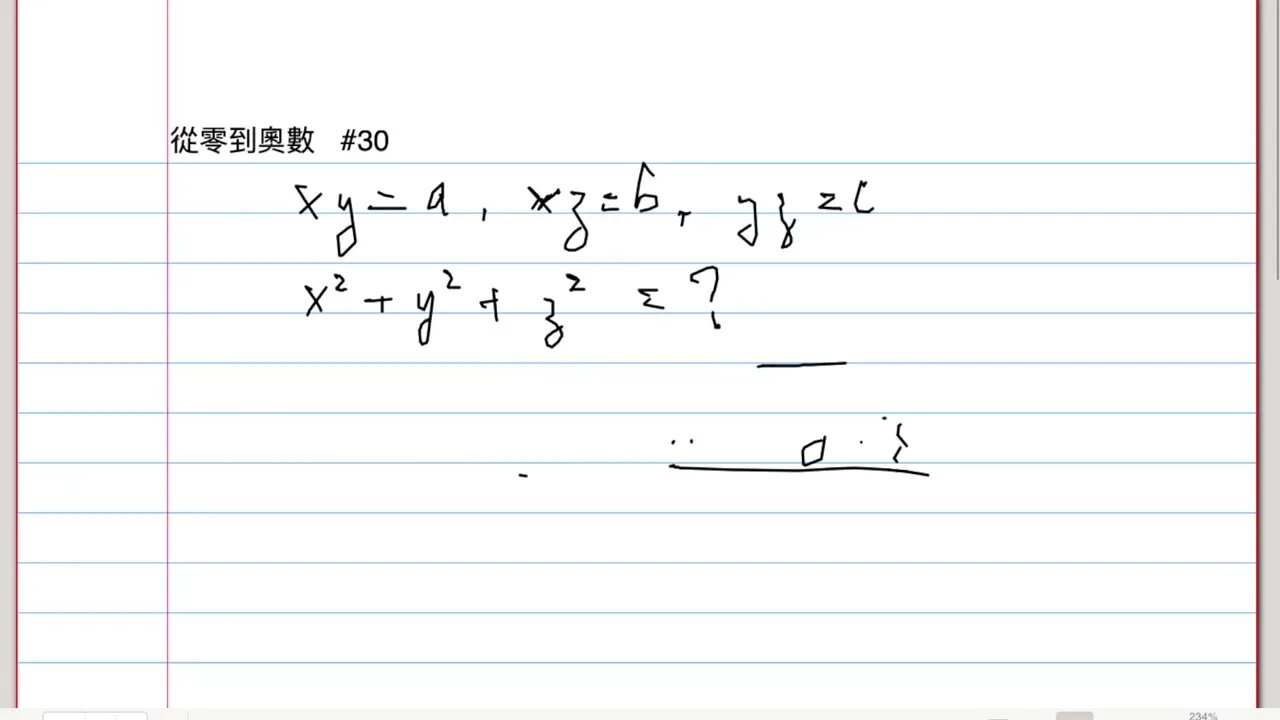 從零到奧數 #30
xy=a, xz=b, yz=c
x²+y²+z²=?
234%